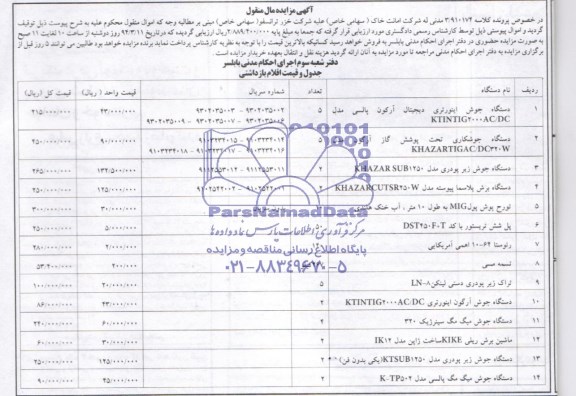 آگهی مزایده مال منقول
در خصوص پرونده کلاسه ۳/۹۱۰۱۷۴ مدنی له شرکت امانت خاک (سهامی خاص) علیه شرکت خزر ترانسفو (سهامی خاص) مبنی بر مطالبه وجه که اموال منقول محکوم علیه به شرح پیوست ذیل توقیف
گردید و اموال پیوستی ذیل توسط کارشناس رسمی دادگستری مورد ارزیابی قرار گرفته که جمعا به مبلغ پایه ۲/۸۸۹/۲۰۰/۰۰۰ ریال ارزیابی گردیده که در تاریخ ۹۴/۳/۱۱ روز دوشنبه از ساعت ۱۰ لغایت ۱۱ صبح
به صورت مزایده حضوری در دفتر اجرای احکام مدنی بابلسر به فروش خواهد رسید کسانیکه بالاترین قیمت را با توجه به نظریه کارشناس پرداخت نماید برنده مزایده خواهد بود طالبین می توانند ۵ روز قبل از
برگزاری مزایده به دفتر اجرای احکام مدنی مراجعه تا مورد مزایده به آنان ارائه گردید هزینه نقل و انتقال بعهده خریدار مزایده است
دفتر شعبه سوم اجرای احکام مدنی بابلسر
جدول و قیمت اقلام بازداشتی
ردیف نام دستگاه تعداد شماره سریال قیمت واحد (ریال) قیمت کل (ریال)
۱ دستگاه جوش اینورتری دیجیتال آرگون پالسی مدل KTINTIG۲۰۰۰AC/DC ۵ ۹۳۰۲۰۳۵۰۰۲ – ۹۳۰۲۰۳۵۰۰۳ ۹۳۰۲۰۳۵۰۰۶ – ۹۳۰۲۰۳۵۰۰۷ – ۹۳۰۲۰۳۵۰۰۹ ۴۳/۰۰۰/۰۰۰ ۲۱۵/۰۰۰/۰۰۰
۲ دستگاه جوشکاری تحت پوشش گاز آرگون مدل KHAZARTIGAC/DC۳۲۰W ۵ ۹۱۰۳۲۳۴۰۱۸ ۹۰/۰۰۰/۰۰۰ ۴۵۰/۰۰۰/۰۰۰
۳ دستگاه جوش زیر پودری مدل KHAZAR SUB۱۲۵۰ ۲ ۱۳۲/۵۰۰/۰۰۰ ۲۶۵/۰۰۰/۰۰۰
۴ دستگاه برش پلاسما پیوسته مدل KHAZARCUTSR۲۵۰W ۲ ۱۲۵/۰۰۰/۰۰۰ ۲۵۰/۰۰۰/۰۰۰
۵ تورچ پوش پول MIG به طول ۱۰ متر، آب خنک ۳۰/۰۰۰/۰۰۰ ۳۰۰/۰۰۰/۰۰۰
۶ پل شش تریستور با کد DST۲۵۰F۰T ۵۰ ۵/۰۰۰/۰۰۰ ۲۵۰/۰۰۰/۰۰۰
۷ رئوستا ۱۰-۶۴ اهمی آمریکایی ۲/۰۰۰/۰۰۰ ۲۸۰/۰۰۰/۰۰۰
۸ تسمه مسی ۲۰۰/۰۰۰ ۵۳/۲۰۰/۰۰۰
۹ تراک زیر پودری دستی لینکن LN-۸ ۵ ۲۰/۰۰۰/۰۰۰ ۱۰۰/۰۰۰/۰۰۰
۱۰ دستگاه جوش آرگون اینورتری KTINTIG۲۰۰۰AC/DC ۲ ۴۳/۰۰۰/۰۰۰ ۸۶/۰۰۰/۰۰۰
۱۱ دستگاه جوش میگ مگ سینرژیک ۳۲۰ ۴ ۶۰/۰۰۰/۰۰۰ ۲۴۰/۰۰۰/۰۰۰
۱۲ ماشین برش ریلی KIKE ساخت ژاپن مدل IK۱۲ ۲ ۳۰/۰۰۰/۰۰۰ ۶۰/۰۰۰/۰۰۰
۱۳ دستگاه جوش زیر پودری مدل KTSUB۱۲۵۰ (یکی بدون فن) ۲ ۱۲۵/۰۰۰/۰۰۰ ۲۵۰/۰۰۰/۰۰۰
۱۴ دستگاه جوش میگ مگ پالسی مدل K-TP۵۰۲ ۲ ۴۵/۰۰۰/۰۰۰ ۹۰/۰۰۰/۰۰۰
ParsNamadData
مرکز فرآوری اطلاعات پارس نماد داده ها
پایگاه اطلاع رسانی مناقصه و مزایده
۰۲۱-۸۸۳۴۹۶۷۰-۵